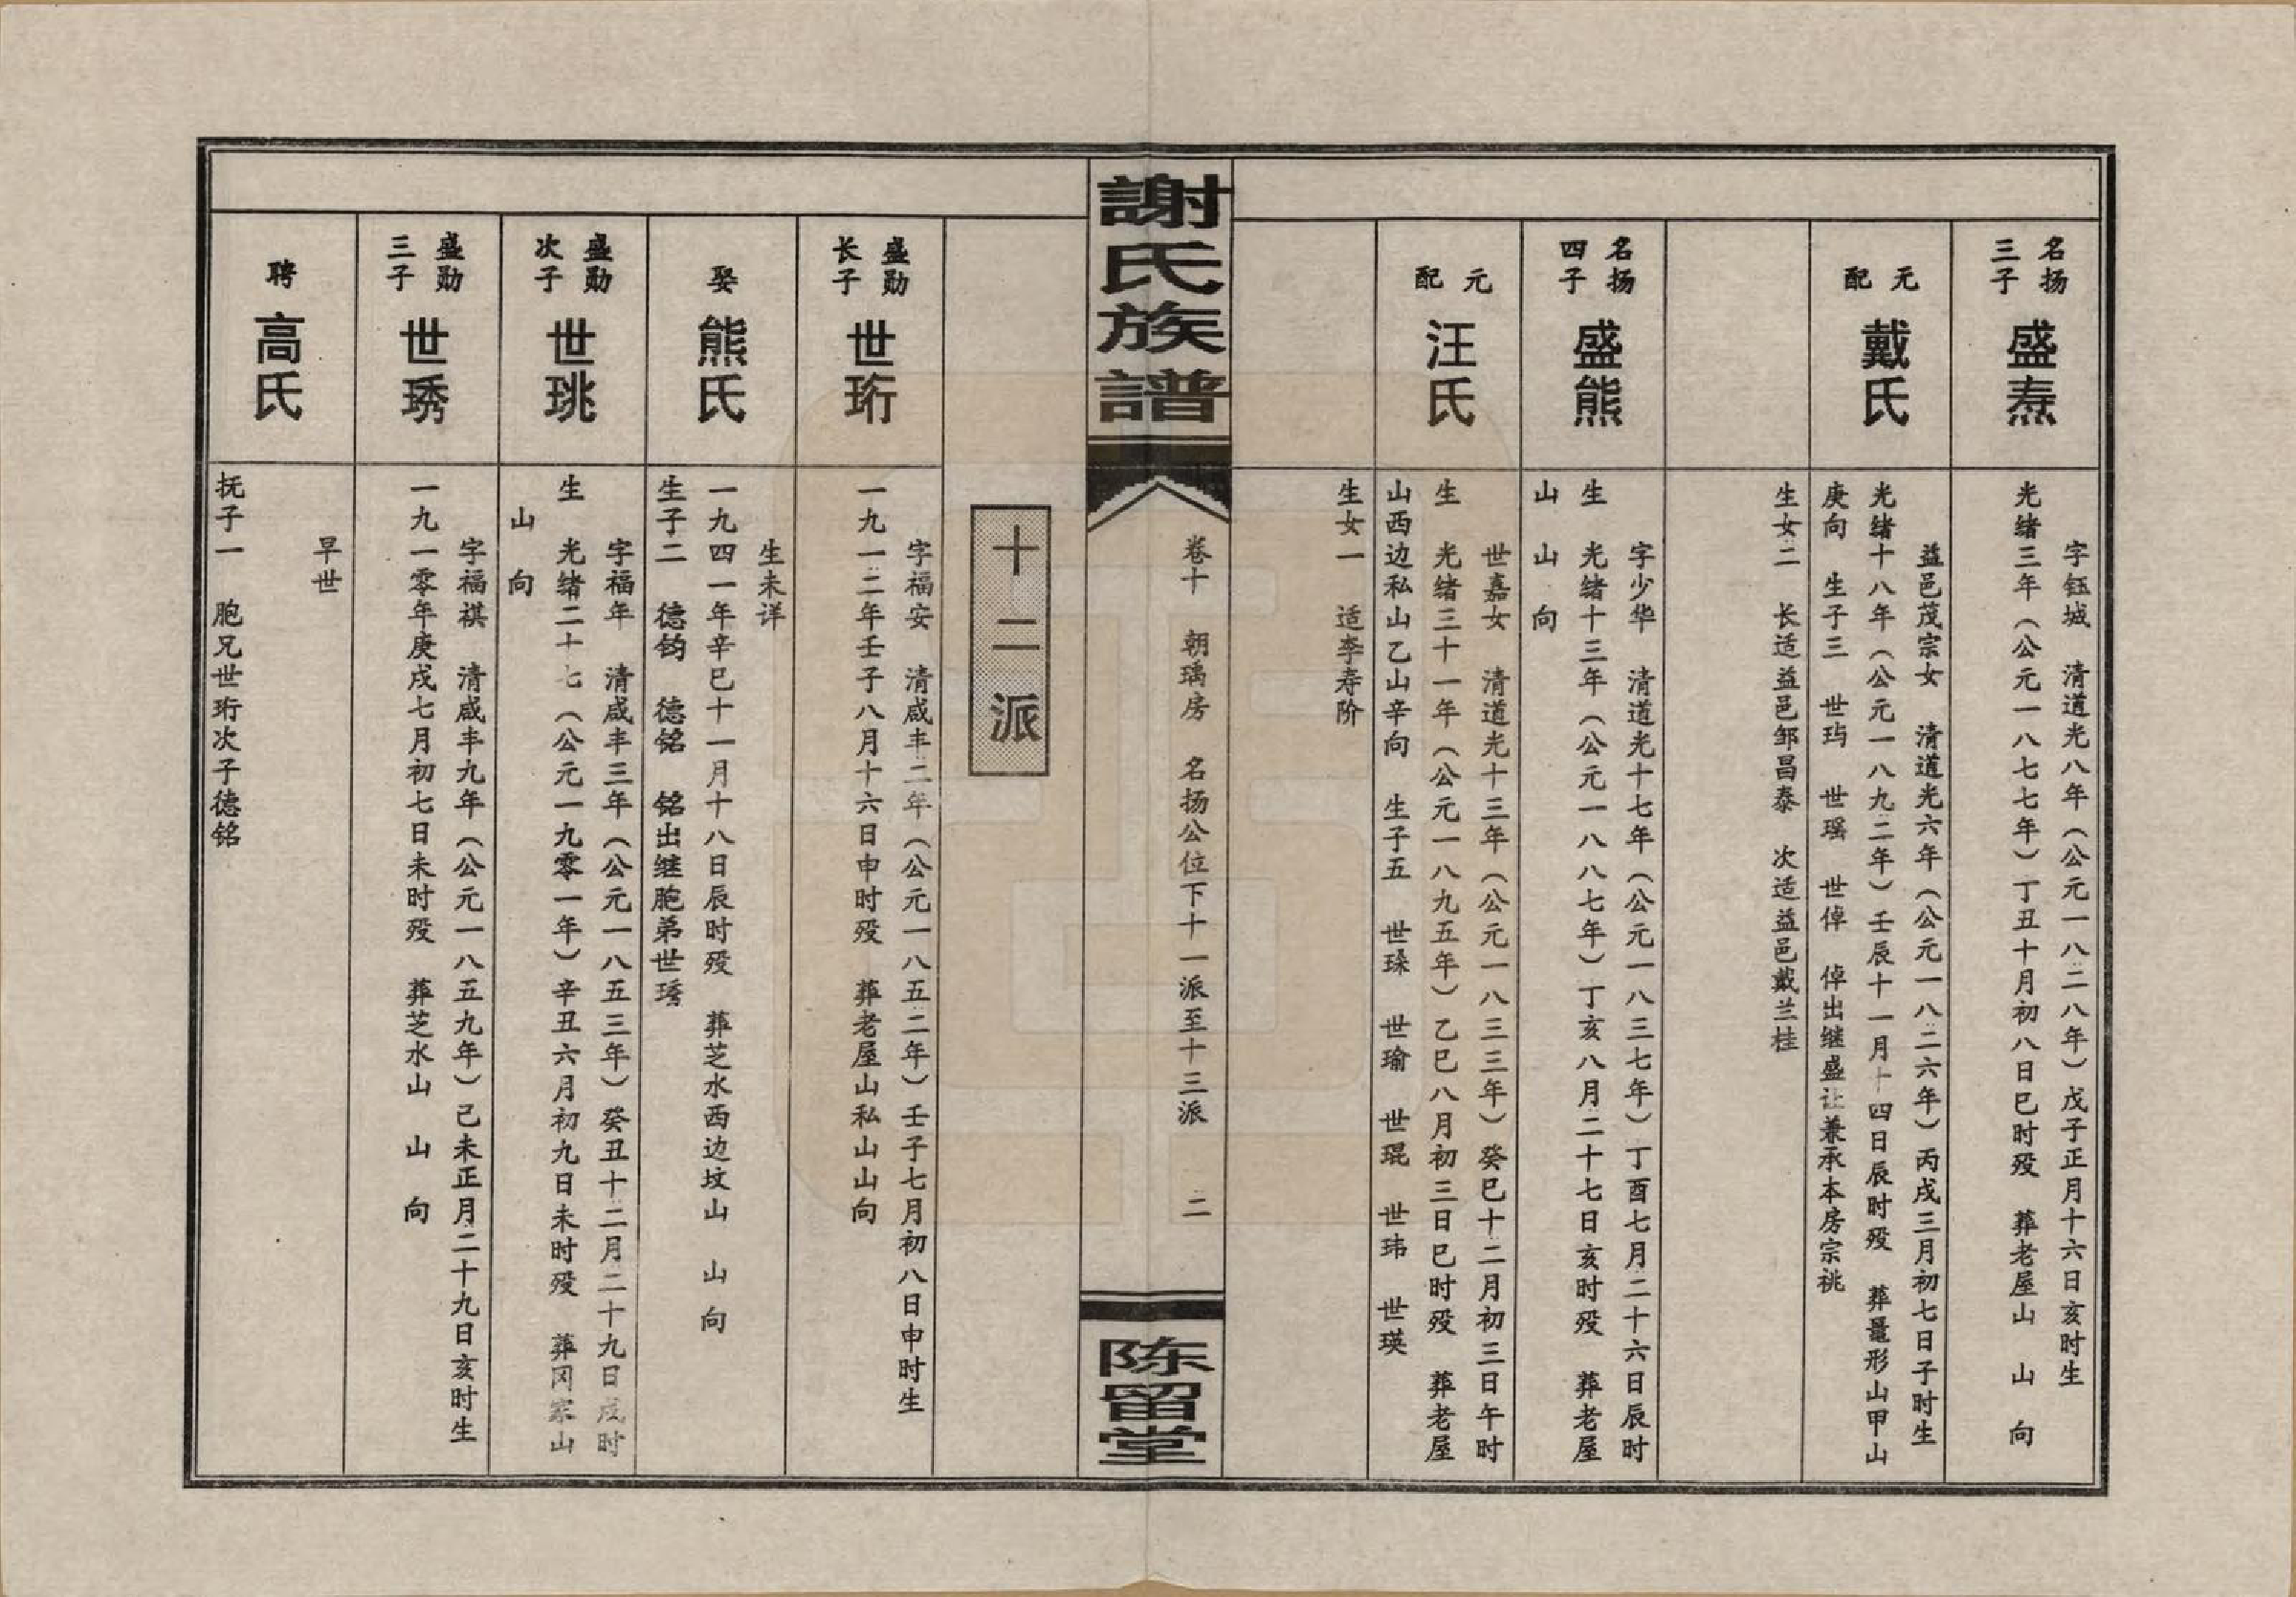 名扬
三子
盛焘
字钰城　清道光八年（公元一八二八年）戊子正月十六日亥时生
光绪三年（公元一八七七年）丁丑十月初八日巳时殁　葬老屋山　山　向
元
配
戴氏
益邑茂宗女　清道光六年（公元一八二六年）丙戌三月初七日子时生
光绪十八年（公元一八九二年）壬辰十一月十四日辰时殁　葬量形山甲山
庚向　生子三　世玙　世瑶　世倬　倬出继盛让兼承本房宗祧
生女二　长适益邑邹昌泰　次适益邑戴兰桂
名扬
四子
盛熊
字少华　清道光十七年（公元一八三七年）丁酉七月二十六日辰时
生　光绪十三年（公元一八八七年）丁亥八月二十七日亥时殁　葬老屋
山　山　向
元
配
汪氏
世嘉女　清道光十三年（公元一八三三年）癸巳十二月初三日午时
生　光绪三十一年（公元一八九五年）乙巳八月初三日巳时殁　葬老屋
山西边私山乙山辛向　生子五　世瑔　世瑜　世琨　世玮　世瑛
生女一　适李寿阶
謝氏族譜
卷十　朝瑀房　名扬公位下十一派至十三派　二
陈留堂
十二派
盛勋
长子
世珩
字福安　清咸丰二年（公元一八五二年）壬子七月初八日申时生
一九一二年壬子八月十六日申时殁　葬老屋山私山山向
娶
熊氏
生未详
一九四一年辛巳十一月十八日辰时殁　葬芝水西边坟山　山　向
生子二　德钧　德铭　铭出继胞弟世琇
盛勋
次子
世珧
字福年　清咸丰三年（公元一八五三年）癸丑十二月二十九日戌时
生　光绪二十七（公元一九零一年）辛丑六月初九日未时殁　葬冈家山
山　向
盛勋
三子
世琇
字福祺　清咸丰九年（公元一八五九年）己未正月二十九日亥时生
一九一零年庚戌七月初七日未时殁　葬芝水山　山　向
聘
高氏
早世
抚子一　胞兄世珩次子德铭